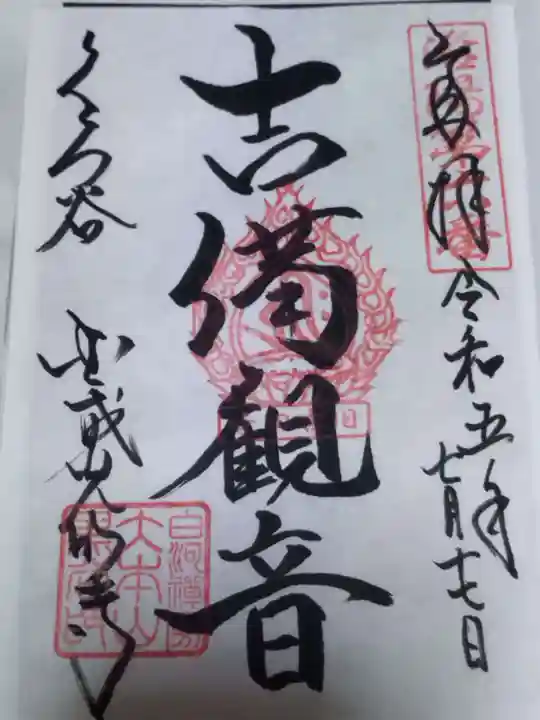 奉拝
令和五年
七月十七日
吉備観音
くろ谷
金戒光明寺
白河禅房
大本山